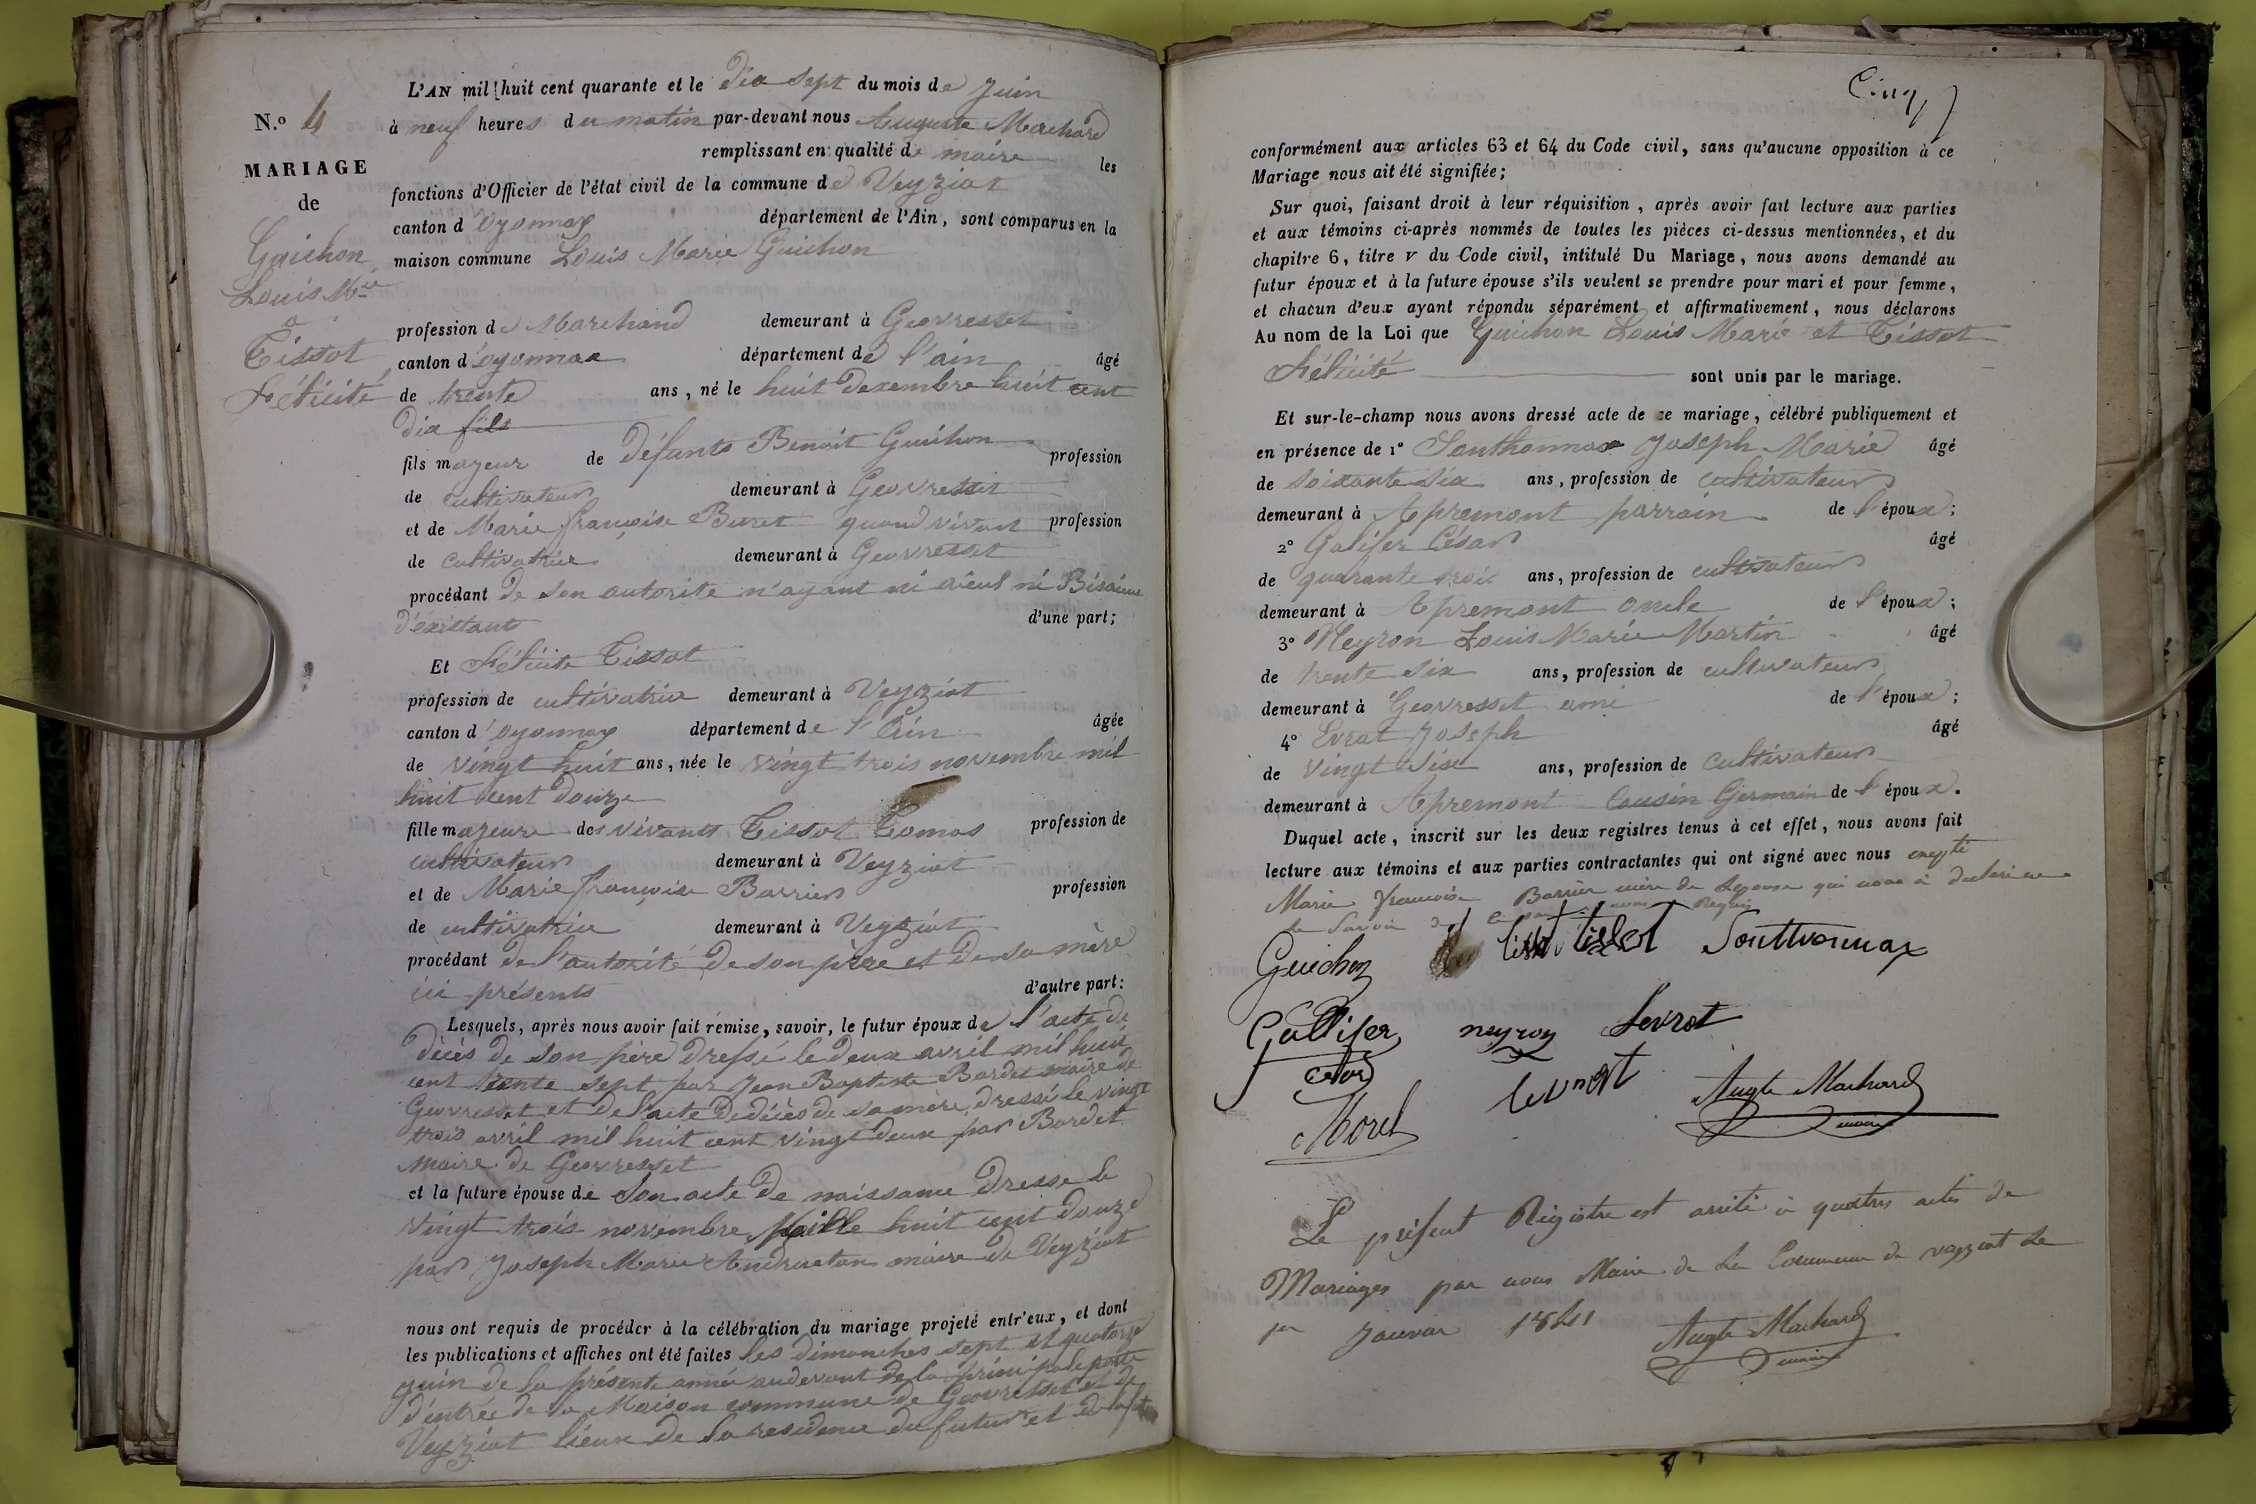 L'AN mil huit cent quarante et le dix sept du mois de Juin
N.o 4
à neuf heures du matin par-devant nous Auguste Machard
MARIAGE
remplissant en qualité de maire les
de
fonctions d'Officier de l'état civil de la commune de Veyziat
canton d'Oyonnax département de l'Ain, sont comparus en la
Guichon
maison commune Louis Marie Guichon
Louis Mie
à
profession de Marchand demeurant à Geovresset
Tissot
canton d'oyonnax département de l'ain âgé
Félicité
de trente ans, né le huit dexembre huit cent
dix fils
fils majeur de défunts Benoit Guichon profession
de cultivateur demeurant à Geovresset
et de Marie françoise Buret quand vivant profession
de cultivatrice demeurant à Geovresset
procédant de son autorité n'ayant ni aieul ni Bisaieul
d'existant d'une part;
Et Félicité Tissot
profession de cultivatrice demeurant à Veyziat
canton d'oyonnax département de l'Ain âgée
de vingt huit ans, née le vingt trois novembre mil
huit cent douze
fille majeure des vivants Tissot Tomas profession de
cultivateur demeurant à Veyziat
et de Marie françoise Barrier profession
de cultivatrice demeurant à Veyziat
procédant de l'autorité de son père et de sa mère
ici présents d'autre part:
Lesquels, après nous avoir fait remise, savoir, le futur époux de l'acte de
décès de son père dressé le deux avril mil huit
cent trente sept par Jean Baptiste Bardet maire de
Geovresset et de l'acte de décès de sa mère, dressé le vingt
trois avril mil huit cent vingt deux par Bardet
maire de Geovresset
et la future épouse de son acte de naissance dressé le
vingt trois novembre Mille huit cent douze
par Joseph Marie maire de Veyziat
nous ont requis de procéder à la célébration du mariage projeté entr'eux, et dont
les publications et affiches ont été faites les dimanches sept et quatorze
juin de la présente année au devant de la principale porte
d'entrée de la Maison commune de Geovresset et de
Veyziat lieux de la residence du futur et de la
Cinq
conformément aux articles 63 et 64 du Code civil, sans qu'aucune opposition à ce
Mariage nous ait été signifiée;
Sur quoi, faisant droit à leur réquisition, après avoir fait lecture aux parties
et aux témoins ci-après nommés de toutes les pièces ci-dessus mentionnées, et du
chapitre 6, titre v du Code civil, intitulé Du Mariage, nous avons demandé au
futur époux et à la future épouse s'ils veulent se prendre pour mari et pour femme,
et chacun d'eux ayant répondu séparément et affirmativement, nous déclarons
Au nom de la Loi que Guichon Louis Marie et Tissot
Félicité sont unis par le mariage.
Et sur-le-champ nous avons dressé acte de ce mariage, célébré publiquement et
en présence de 1° Sonthonnax Joseph Marie âgé
de soixante six ans, profession de cultivateur
demeurant à Apremont parrain de l'époux;
2° Galifer César âgé
de quarante trois ans, profession de cultivateur
demeurant à Apremont oncle de l'époux;
3° Neyron Louis Marie Martin âgé
de trente six ans, profession de cultivateur
demeurant à Geovresset ami de l'époux;
4° Evrat Joseph âgé
de vingt six ans, profession de cultivateur
demeurant à Apremont Cousin Germain de l'époux.
Duquel acte, inscrit sur les deux registres tenus à cet effet, nous avons fait
lecture aux témoins et aux parties contractantes qui ont signé avec nous excepté
Marie françoise Barrier mère de Lepouse qui nous a declaré ne
le savoir de ce par nous Requis
Guichon tissot tissot Sonthonnax
Gallifer neyron Levrat
César
Morel Augte Machard
maire
Le présent Registre est arrêté à quatres actes de
Mariages par nous Maire de la Commune de veyziat Le
1er Janvier 1841
Augte Machard
maire